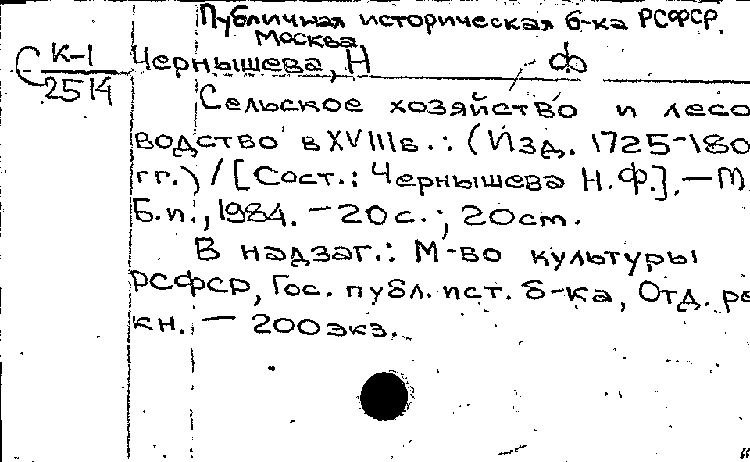 Публичная историческая б-ка РСФСР.
Москва
С К-1 Чернышева, Н Ф
2514
Сельское хозяйство и лесо
водство в XVIIIв.: (Изд. 1725-180
гг.) / [Сост.: Чернышева Н.Ф.]. — М.
Б.и., 1984. — 20 с.; 20 см.
В надзаг.: М-во культуры
РСФСР, Гос. публ. ист. б-ка, Отд. ре
кн. — 200 экз.